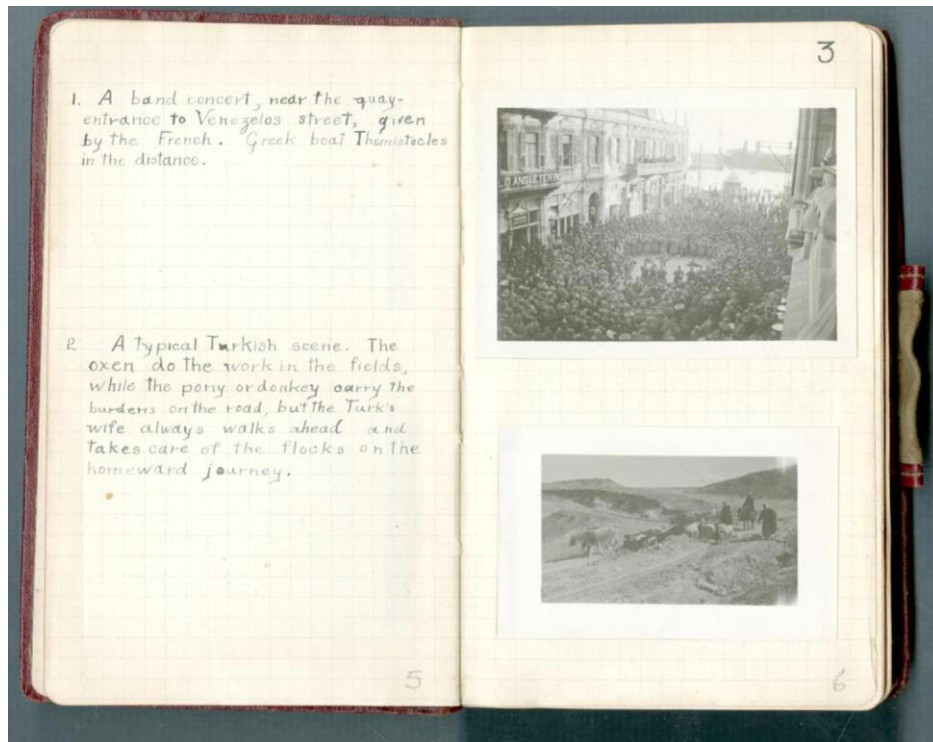 1. A band concert, near the quay-
entrance to Venezelos street, given
by the French. Greek boat Themistocles
in the distance.
2 A typical Turkish scene. The
oxen do the work in the fields,
while the pony or donkey carry the
burdens on the road, but the Turk's
wife always walks ahead and
takes care of the flocks on the
homeward journey.
5
3
D'ANGLETERRE
6